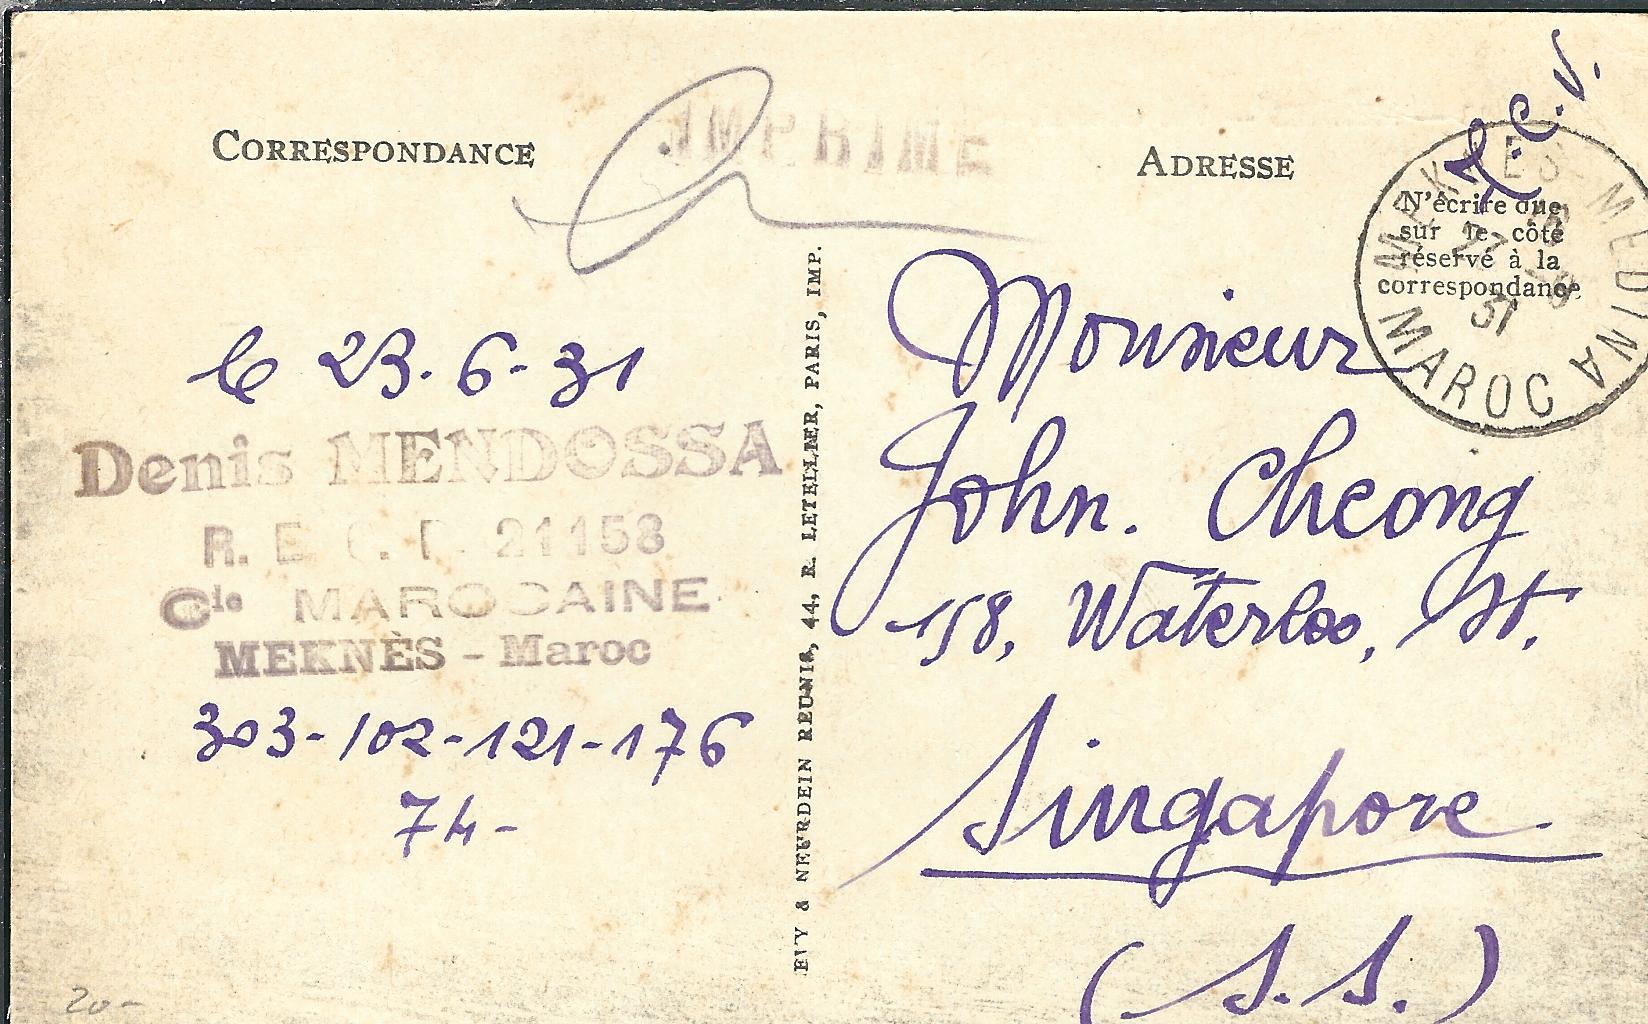 T.C.V.
CORRESPONDANCE
IMPRIME
ADRESSE
N'écrire que
sur le côté
réservé à la
correspondance
MEKNES-MEDINA
27
31
MAROC
le 23.6-31
Denis MENDOSSA
R. E. C. P. 21158
Cie MAROCAINE
MEKNÈS - Maroc
303-102-121-176
74-
20-
EVY & NEURDEIN REUNIS, 44, R. LETELLIER, PARIS, IMP.
Monsieur
John. Cheong
158, Waterloo, St.
Singapore.
(S.S.)